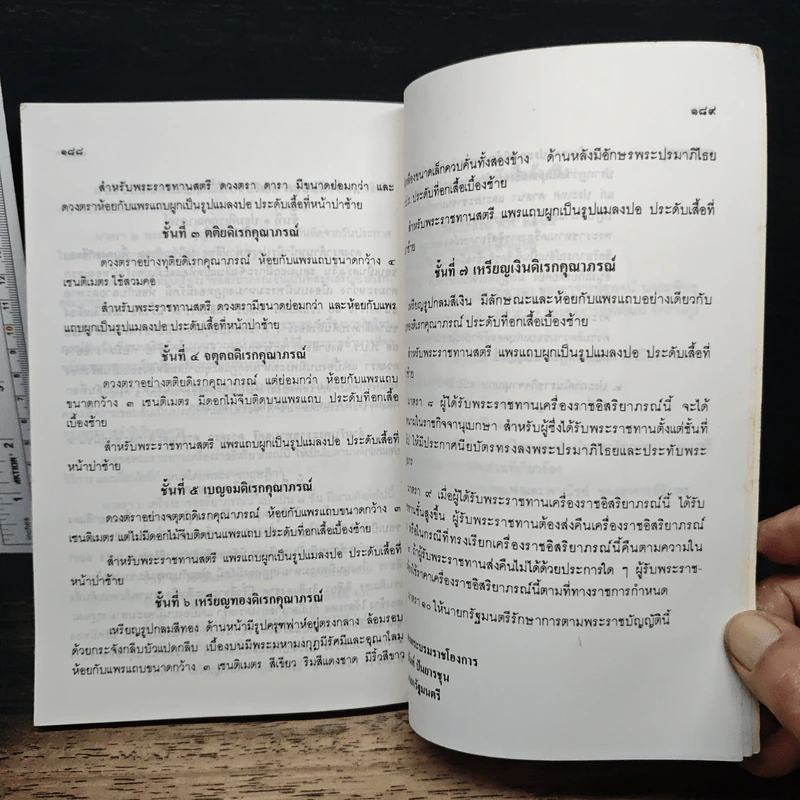 ๑๘๘
สำหรับพระราชทานสตรี ดวงตรา ดารา มีขนาดย่อมกว่า และ
ดวงตราห้อยกับแพรแถบผูกเป็นรูปแมลงปอ ประดับเสื้อที่หน้าบ่าซ้าย
ชั้นที่ ๓ ตติยดิเรกคุณาภรณ์
ดวงตราอย่างทุติยดิเรกคุณาภรณ์ ห้อยกับแพรแถบขนาดกว้าง ๔
เซนติเมตร ใช้สวมคอ
สำหรับพระราชทานสตรี ดวงตรามีขนาดย่อมกว่า และห้อยกับแพร
แถบผูกเป็นรูปแมลงปอ ประดับเสื้อที่หน้าบ่าซ้าย
ชั้นที่ ๔ จตุตถดิเรกคุณาภรณ์
ดวงตราอย่างตติยดิเรกคุณาภรณ์ แต่ย่อมกว่า ห้อยกับแพรแถบ
ขนาดกว้าง ๓ เซนติเมตร มีดอกไม้จีบติดบนแพรแถบ ประดับที่อกเสื้อ
เบื้องซ้าย
สำหรับพระราชทานสตรี แพรแถบผูกเป็นรูปแมลงปอ ประดับเสื้อที่
หน้าบ่าซ้าย
ชั้นที่ ๕ เบญจมดิเรกคุณาภรณ์
ดวงตราอย่างจตุตถดิเรกคุณาภรณ์ ห้อยกับแพรแถบขนาดกว้าง ๓
เซนติเมตร แต่ไม่มีดอกไม้จีบติดบนแพรแถบ ประดับที่อกเสื้อเบื้องซ้าย
สำหรับพระราชทานสตรี แพรแถบผูกเป็นรูปแมลงปอ ประดับเสื้อที่
หน้าบ่าซ้าย
ชั้นที่ ๖ เหรียญทองดิเรกคุณาภรณ์
เหรียญรูปกลมสีทอง ด้านหน้ามีรูปครุฑพ่าห์อยู่ตรงกลาง ล้อมรอบ
ด้วยกระจังกลีบบัวแปดกลีบ เบื้องบนมีพระมหามงกุฎมีรัศมีและอุณาโลม
ห้อยกับแพรแถบขนาดกว้าง ๓ เซนติเมตร สีเขียว ริมสีแดงชาด มีริ้วสีขาว
๑๘๙
ขนาดเล็กควบคั่นทั้งสองข้าง ด้านหลังมีอักษรพระปรมาภิไธย
ประดับที่อกเสื้อเบื้องซ้าย
สำหรับพระราชทานสตรี แพรแถบผูกเป็นรูปแมลงปอ ประดับเสื้อที่
ซ้าย
ชั้นที่ ๗ เหรียญเงินดิเรกคุณาภรณ์
เหรียญรูปกลมสีเงิน มีลักษณะและห้อยกับแพรแถบอย่างเดียวกับ
ดิเรกคุณาภรณ์ ประดับที่อกเสื้อเบื้องซ้าย
สำหรับพระราชทานสตรี แพรแถบผูกเป็นรูปแมลงปอ ประดับเสื้อที่
ซ้าย
มาตรา ๘ ผู้ได้รับพระราชทานเครื่องราชอิสริยาภรณ์นี้ จะได้
นามในราชกิจจานุเบกษา สำหรับผู้ซึ่งได้รับพระราชทานตั้งแต่ชั้นที่
ให้มีประกาศนียบัตรทรงลงพระปรมาภิไธยและประทับพระ
มาตรา ๙ เมื่อผู้ได้รับพระราชทานเครื่องราชอิสริยาภรณ์นี้ ได้รับ
ชั้นสูงขึ้น ผู้รับพระราชทานต้องส่งคืนเครื่องราชอิสริยาภรณ์
หรือในกรณีที่ทรงเรียกเครื่องราชอิสริยาภรณ์นี้คืนตามความใน
ถ้าผู้รับพระราชทานส่งคืนไม่ได้ด้วยประการใด ๆ ผู้รับพระราช-
ใช้ราคาเครื่องราชอิสริยาภรณ์นี้ตามที่ทางราชการกำหนด
มาตรา ๑๐ ให้นายกรัฐมนตรีรักษาการตามพระราชบัญญัตินี้
พระบรมราชโองการ
ปันยารชุน
รัฐมนตรี